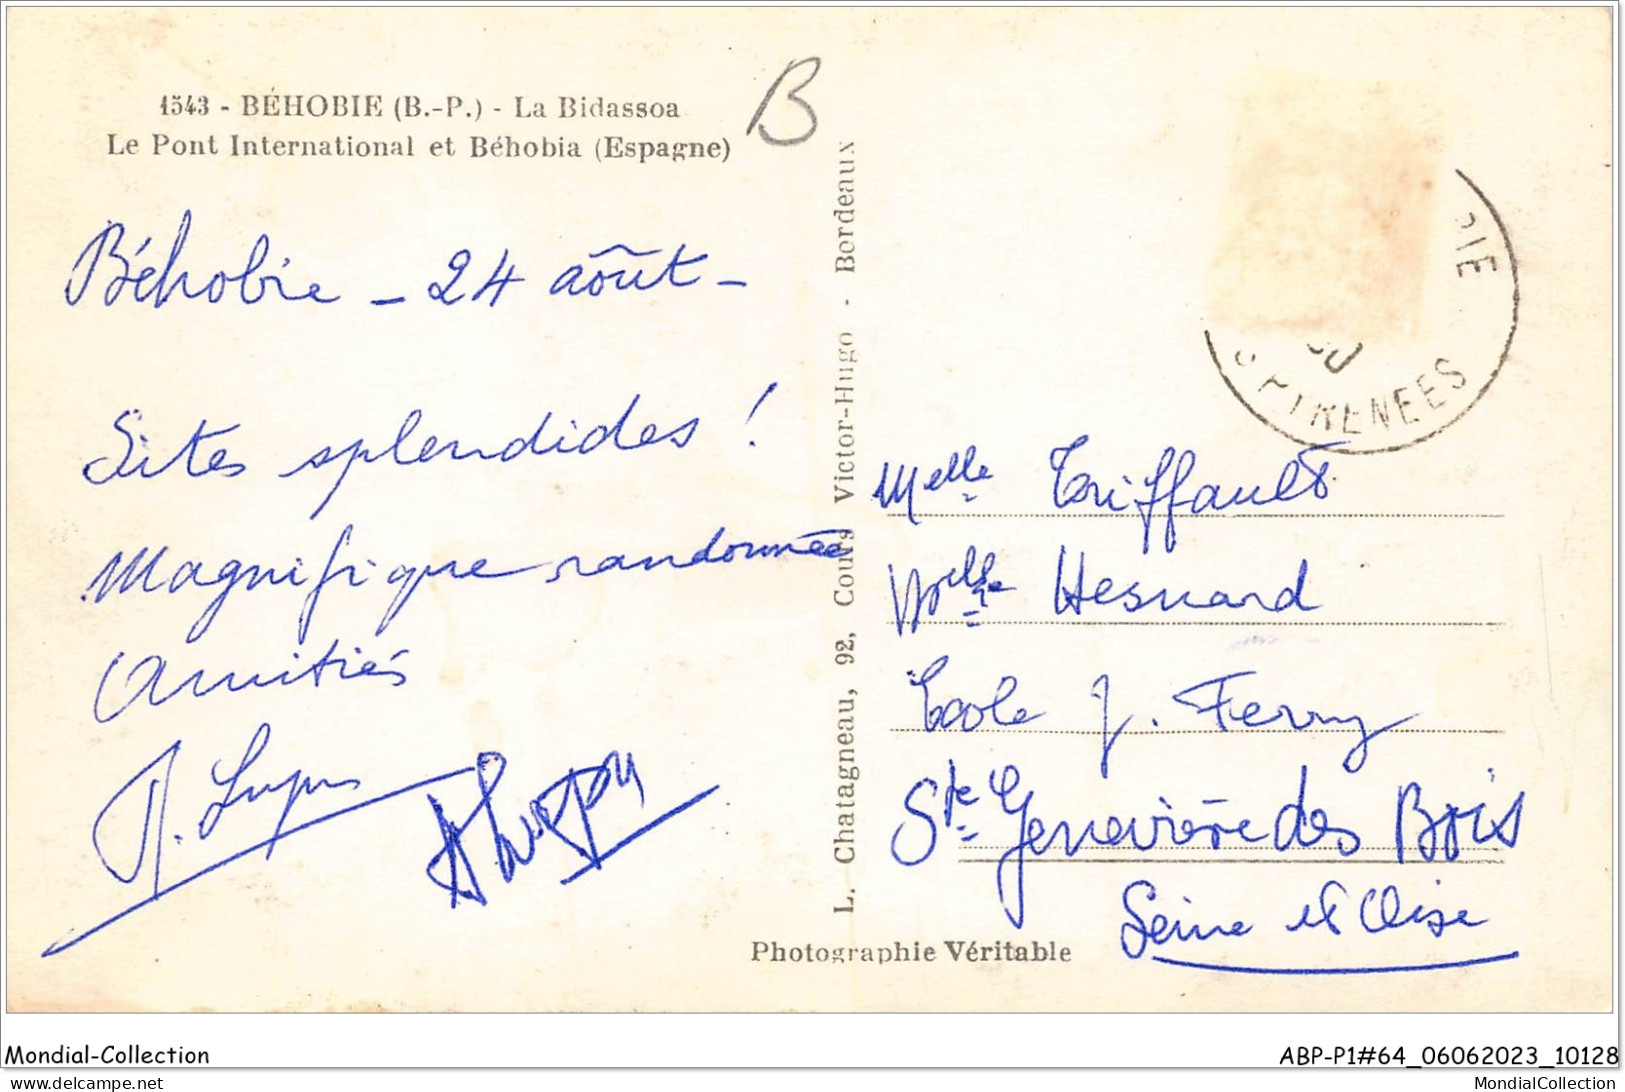 1543 - BÉHOBIE (B.-P.) - La Bidassoa
Le Pont International et Béhobia (Espagne)
B
Béhobie - 24 août -
Sites splendides !
Magnifique randonnée
Amitiés
L. Chatagneau, 92, Cours Victor-Hugo - Bordeaux
Photographie Véritable
PYRENEES
Melle Triffault
Melle Hesnard
Ecole J. Ferry
Ste Geneviève des Bois
Seine et Oise
Mondial-Collection
ABP-P1#64_06062023_10128
www.delcampe.net
MondialCollection